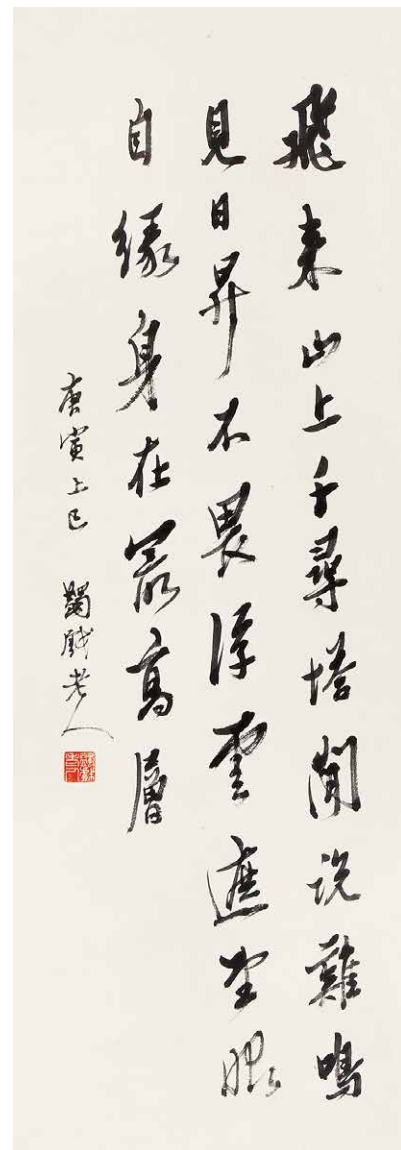 飛来山上千尋塔聞说雞鳴
見日昇不畏浮雲遮望眼
自緣身在最高層
庚寅上巳 老人